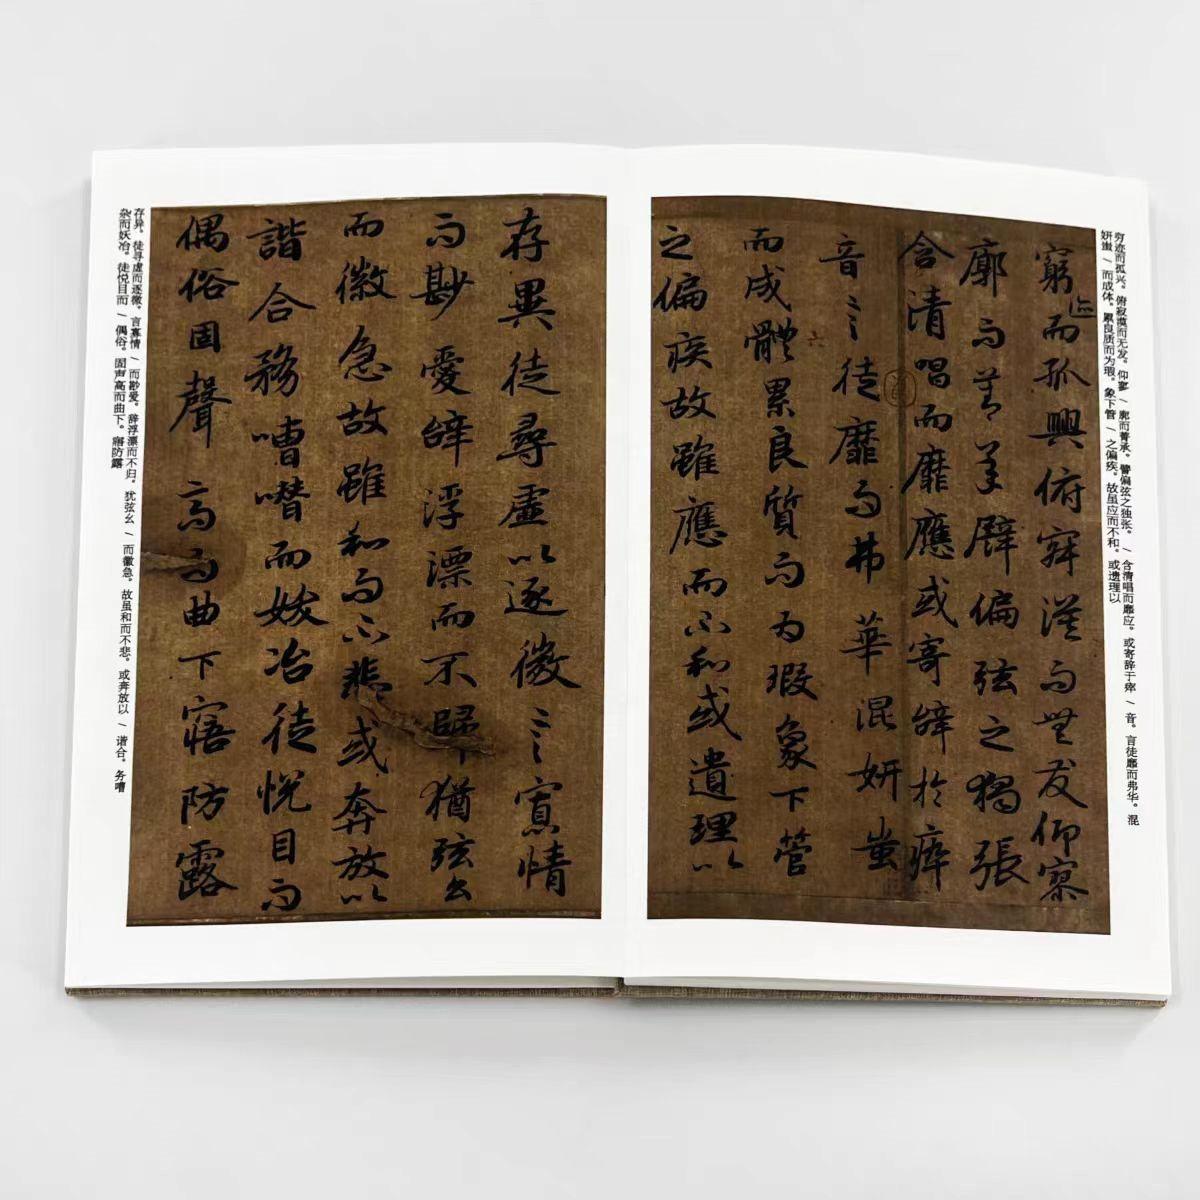 穷迹而孤兴。俯寂漠而无友。仰寥/廓而莫承。譬偏弦之独张。/含清唱而靡应。或寄辞于瘁/音。言徒靡而弗华。混
妍蚩/而成体。累良质而为瑕。象下管/之偏疾。故虽应而不和。或遗理以
窮迹而孤興俯寂漠而無友仰寥
廓而莫承譬偏弦之獨張
含清唱而靡應或寄辭於瘁
音言徒靡而弗華混妍蚩
六
而成體累良質而為瑕象下管
之偏疾故雖應而不和或遺理以
存異徒尋虛以逐微言寡情
而尠愛辭浮漂而不歸猶弦幺
而徽急故雖和而不悲或奔放以
諧合務嘈囋而妖冶徒悅目而
偶俗固聲高而曲下寤防露
存异。徒寻虚而逐微。言寡情/而尠爱。辞浮漂而不归。犹弦幺/而徽急。故虽和而不悲。或奔放以/谐合。务嘈
杂而妖冶。徒悦目而/偶俗。固声高而曲下。寤防露